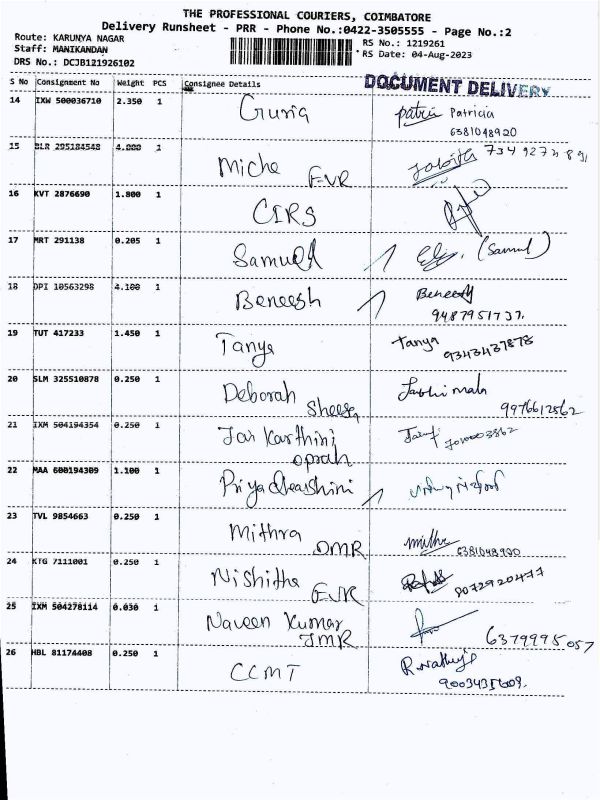 THE PROFESSIONAL COURIERS, COIMBATORE
Delivery Runsheet - PRR - Phone No.:0422-3505555 - Page No.:2
Route: KARUNYA NAGAR
RS No.: 1219261
Staff: MANIKANDAN
RS Date: 04-Aug-2023
DRS No.: DCJB121926102
DOCUMENT DELIVERY
S No Consignment No Weight PCS Consignee Details
14 IXW 500036710 2.350 1 Patricia
6381048920
15 BLR 295184548 4.000 1 Miche
EVR
16 KVT 2876690 1.800 1 CIRS
17 MRT 291138 0.205 1 Samuel (Samul)
18 DPI 10563298 4.100 1 Beneesh Beneesh
9487951737.
19 TUT 417233 1.450 1 Tanya Tanya
9343437878
20 SLM 325510878 0.250 1 Deborah
9976612562
21 IXM 504194354 0.250 1 Jai Karthini
oprah
22 MAA 600194309 1.100 1 Priyadharshini
23 TVL 9854663 0.250 1 Mithra
DMR
24 KTG 7111001 0.250 1 Nishitha
EVR 8072920477
25 IXM 504278114 0.030 1 Naveen Kumar
JMR 6379995057
26 HBL 81174408 0.250 1 CCMT